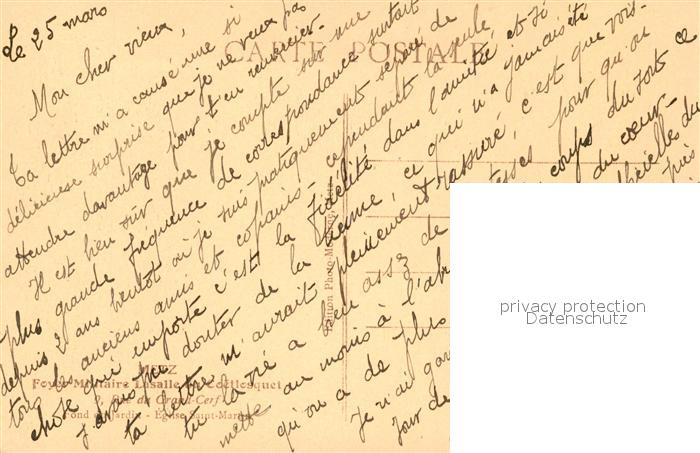 Le 25 mars
Mon cher vieux,
Ta lettre m'a causé une si
délicieuse surprise que je ne veux pas
attendre davantage pour t'en remercier.
Il est bien sûr que je compte sur une
plus grande fréquence de correspondance surtout
depuis 2 ans bientôt où je suis pratiquement séparé de
tous les anciens amis et copains - cependant la seule
chose qui importe c'est la fidélité dans l'amitié et si
j'avais pu douter de la tienne, ce qui n'a jamais été
ta lettre m'aurait pleinement rassuré, c'est que vois-
tu la vie a bien assez de pour qu'on
mette au moins à l'abri corps du tout ce
qu'on a de plus du coeur -
Je n'ai
jour de
CARTE POSTALE
METZ
Foyer Militaire Lasalle du Coëtlosquet
9, Rue du Grand-Cerf
Fond du Jardin - Eglise Saint-Martin
privacy protection
Datenschutz